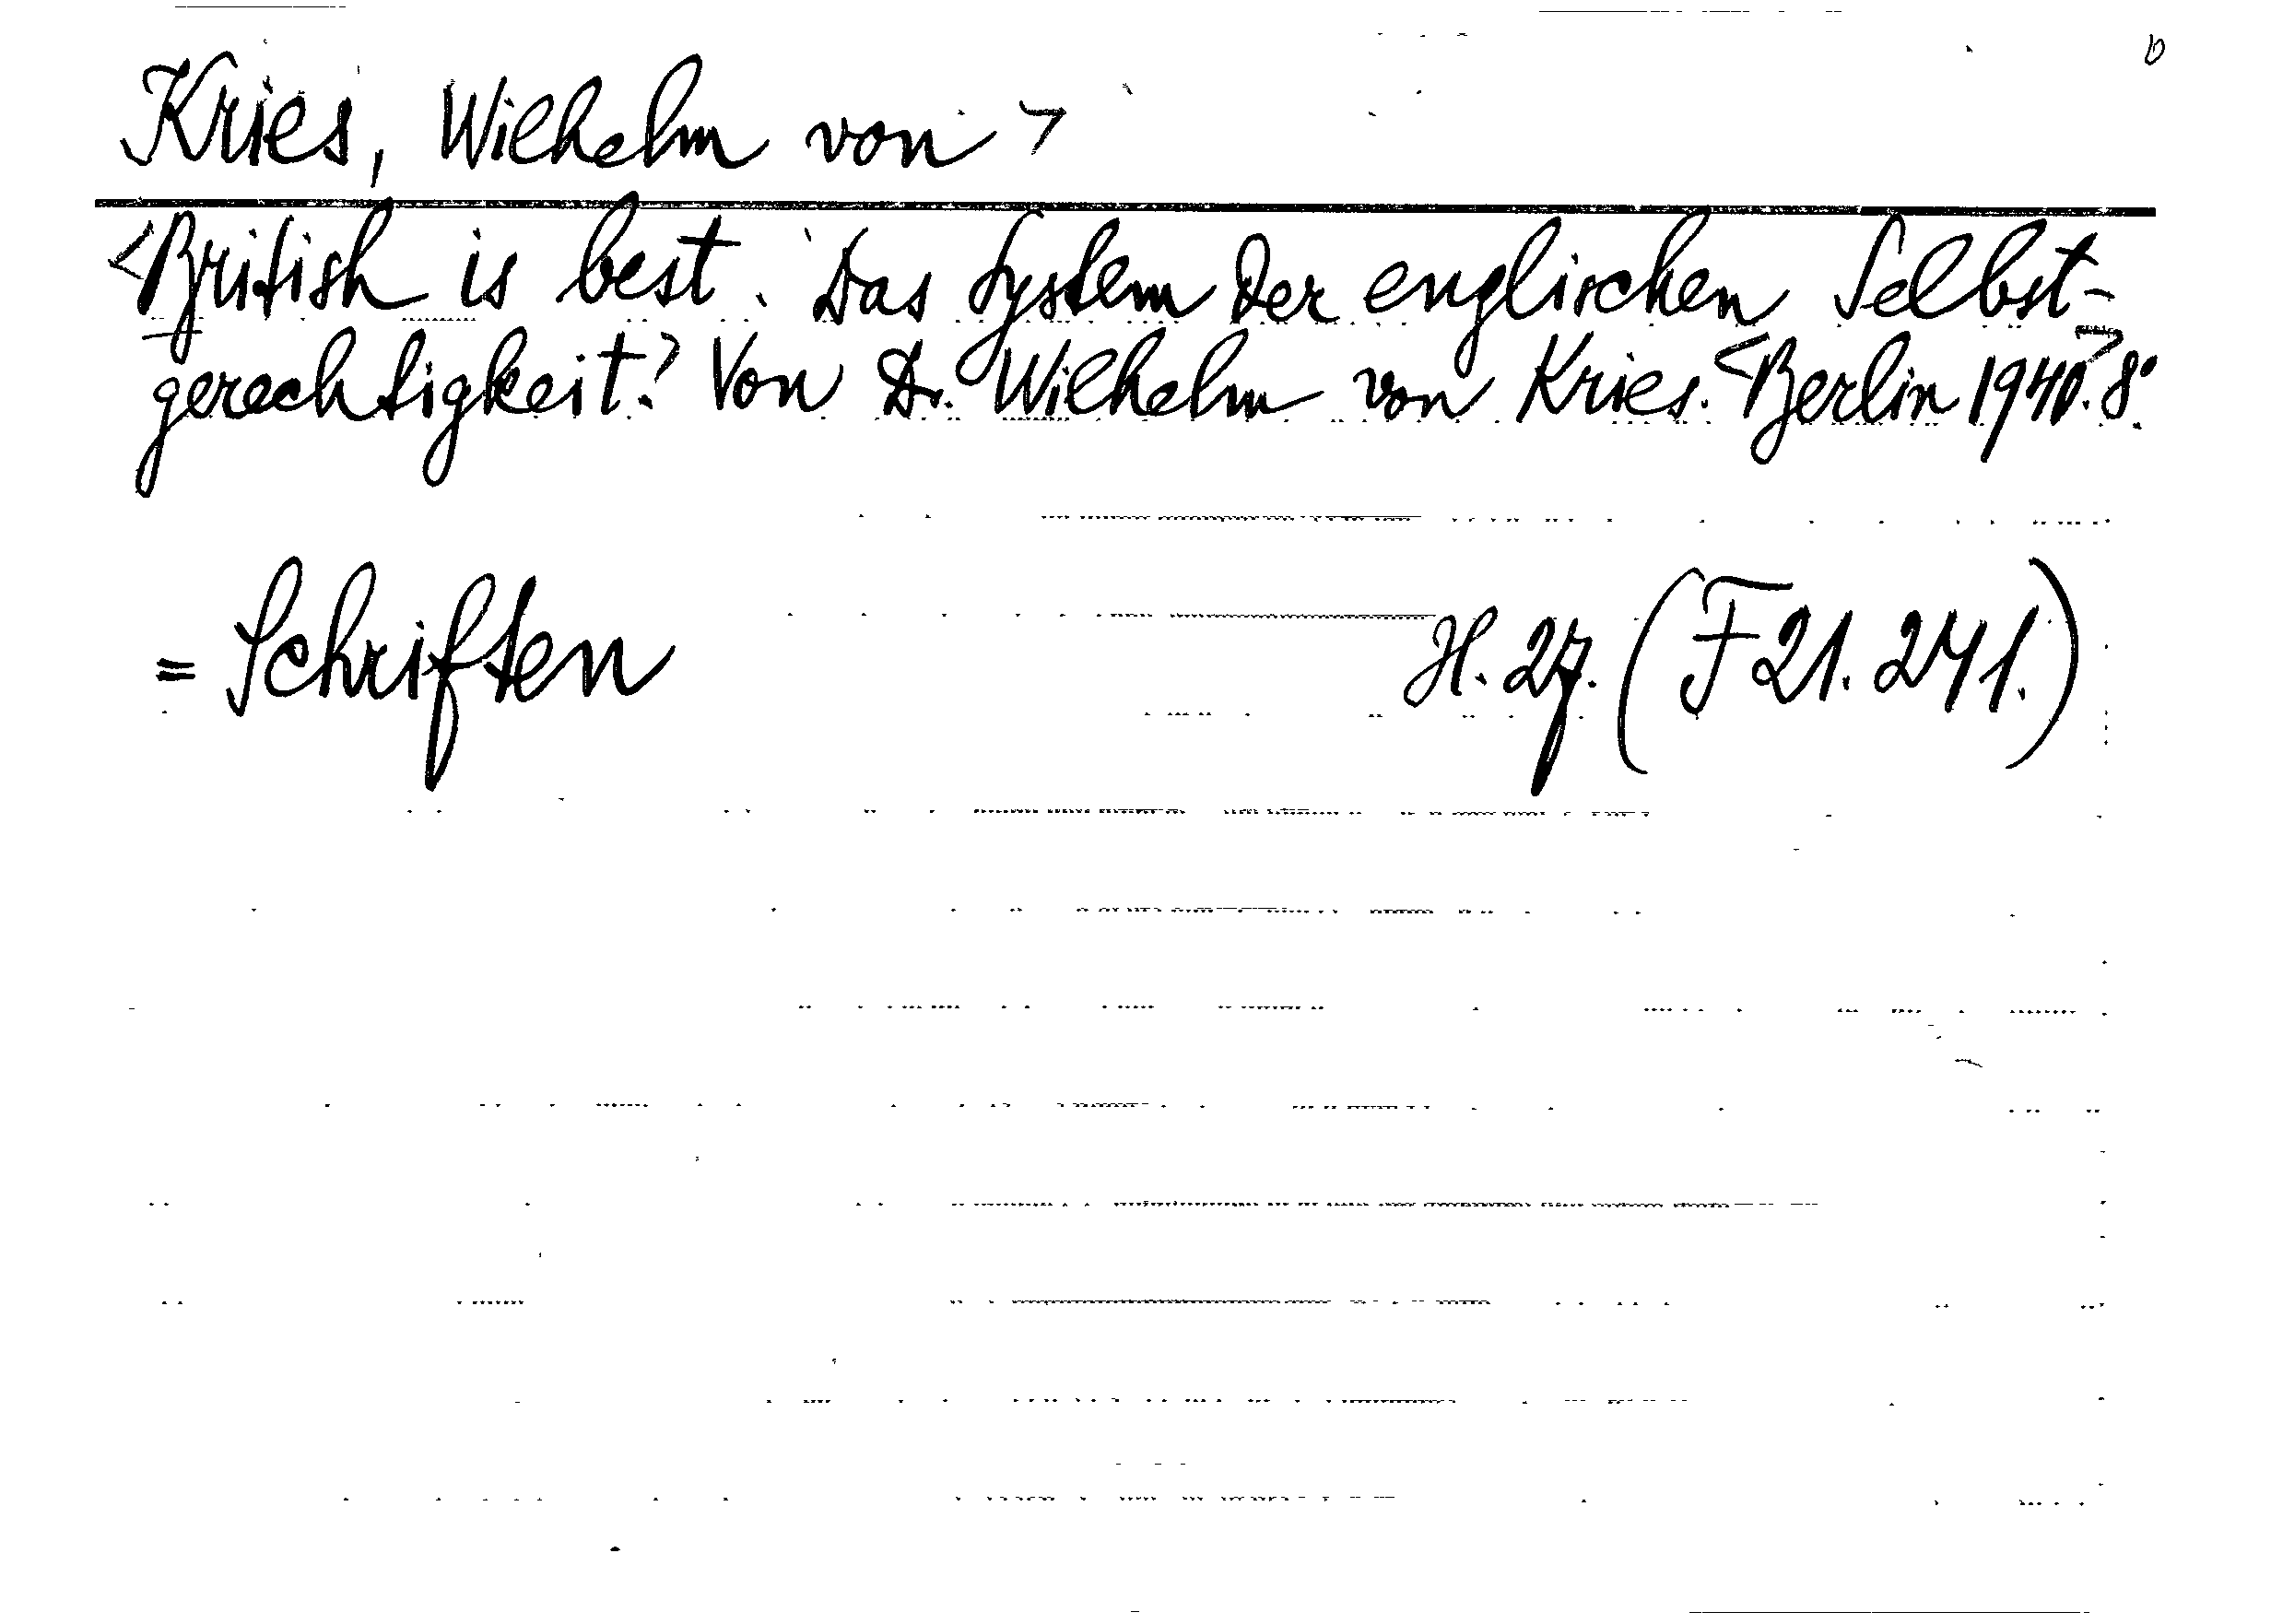 Kries, Wilhelm von >
<British is best. Das System der englischen Selbst-
gerechtigkeit? Von Dr. Wilhelm von Kries. <Berlin 1940.> 8°.
= Schriften H. 27. (F 21. 241.)